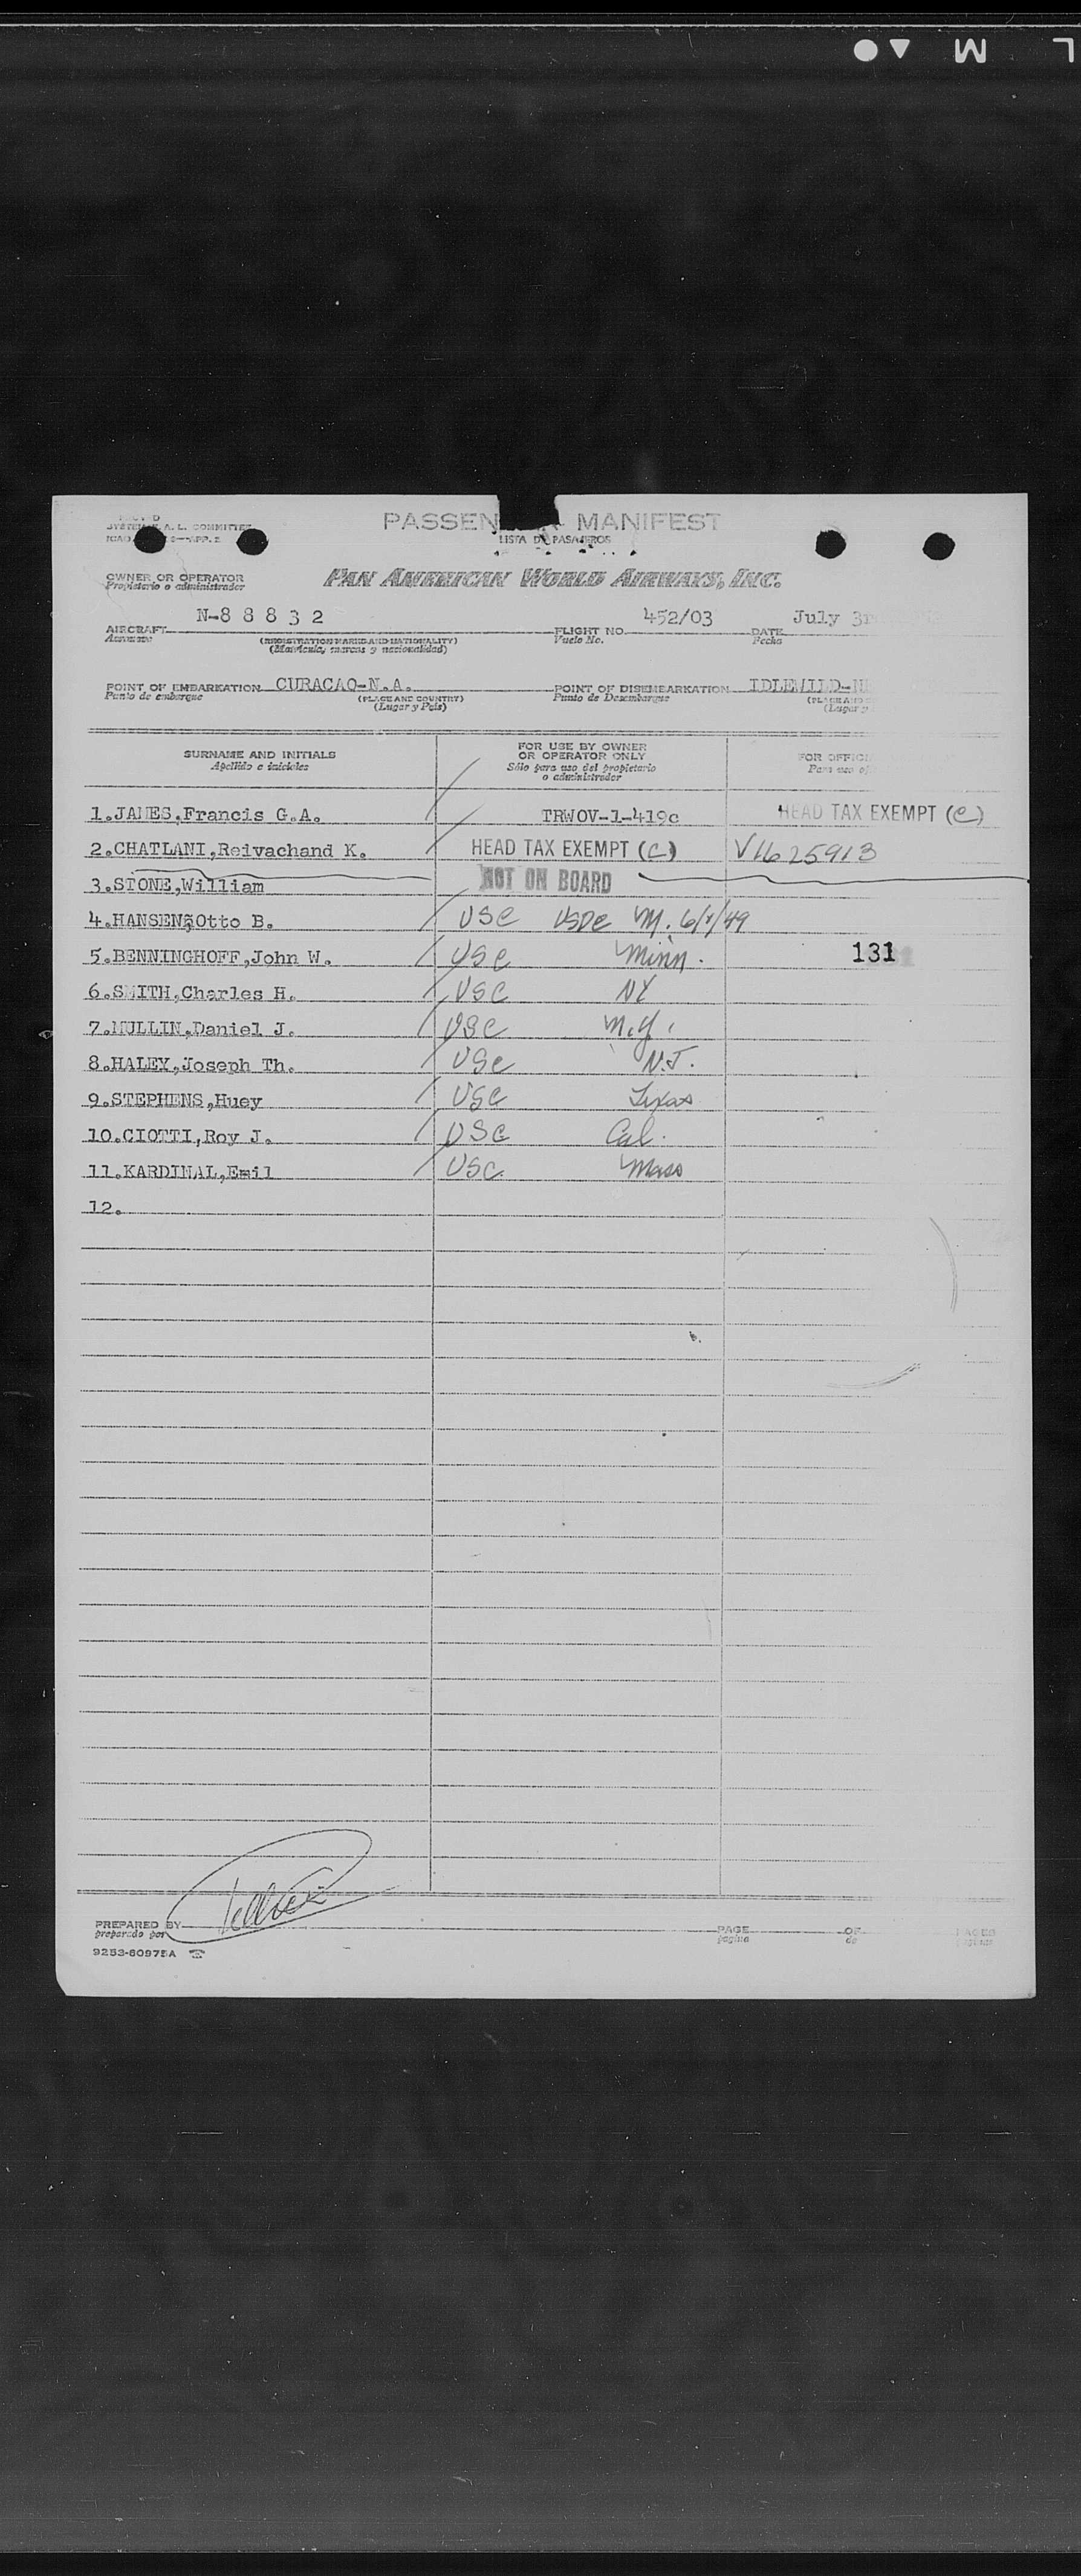 L M
SYSTEM F. A. L. COMMITTEE
PASSEN MANIFEST
LISTA DE PASAJEROS
OWNER OR OPERATOR PAN AMERICAN WORLD AIRWAYS, INC.
Propietario o administrador
AIRCRAFT N-8 8 8 3 2 FLIGHT NO. 452/03 DATE July 3r
Aeronave (REGISTRATION MARKS AND NATIONALITY) Vuelo No. Fecha
(Matrícula, marcas y nacionalidad)
POINT OF EMBARKATION CURACAO-N.A. POINT OF DISEMBARKATION IDLEWILD-N
Punto de embarque (PLACE AND COUNTRY) Punto de Desembarque (PLACE AND
(Lugar y País) (Lugar y
SURNAME AND INITIALS
Apellido e iniciales
FOR USE BY OWNER
OR OPERATOR ONLY
Sólo para uso del propietario
o administrador
FOR OFFICI
Para uso of
1.JAMES,Francis G.A. TRWOV-1-419c HEAD TAX EXEMPT (C)
2.CHATLANI,Reivachand K. HEAD TAX EXEMPT (C) V1625913
3.STONE,William NOT ON BOARD
4.HANSEN,Otto B. USC USDC M. 6/7/49
5.BENNINGHOFF,John W. USC Minn. 131
6.SMITH,Charles H. USC NY
7.MULLIN,Daniel J. USC N.Y.
8.HALEY,Joseph Th. USC N.J.
9.STEPHENS,Huey USC Texas
10.CIOTTI,Roy J. USC Cal.
11.KARDINAL,Emil USC Mass
12.
PREPARED BY PAGE OF PAGES
preparado por pagina de paginas
9253-60975A